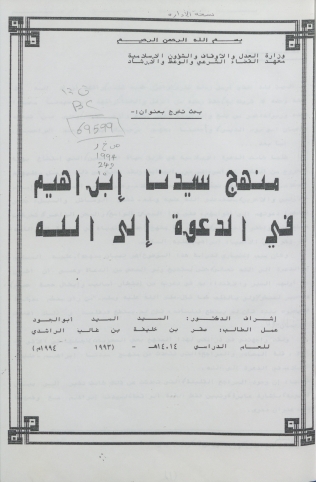 نسخة الإدارة
بسم الله الرحمن الرحيم
وزارة العدل والأوقاف والشؤون الإسلامية
معهد القضاء الشرعي والوعظ والإرشاد
BC
69599
بحث تخرج بعنوان :-
1994
منهج سيدنا إبراهيم
في الدعوة إلى الله
إشراف الدكتور: السيد السيد ابوالجود
عمل الطالب: صقر بن خليفة بن غالب الراشدي
للعام الدراسي ١٤٠١٤هـ - (١٩٩٣ - ١٩٩٤م)